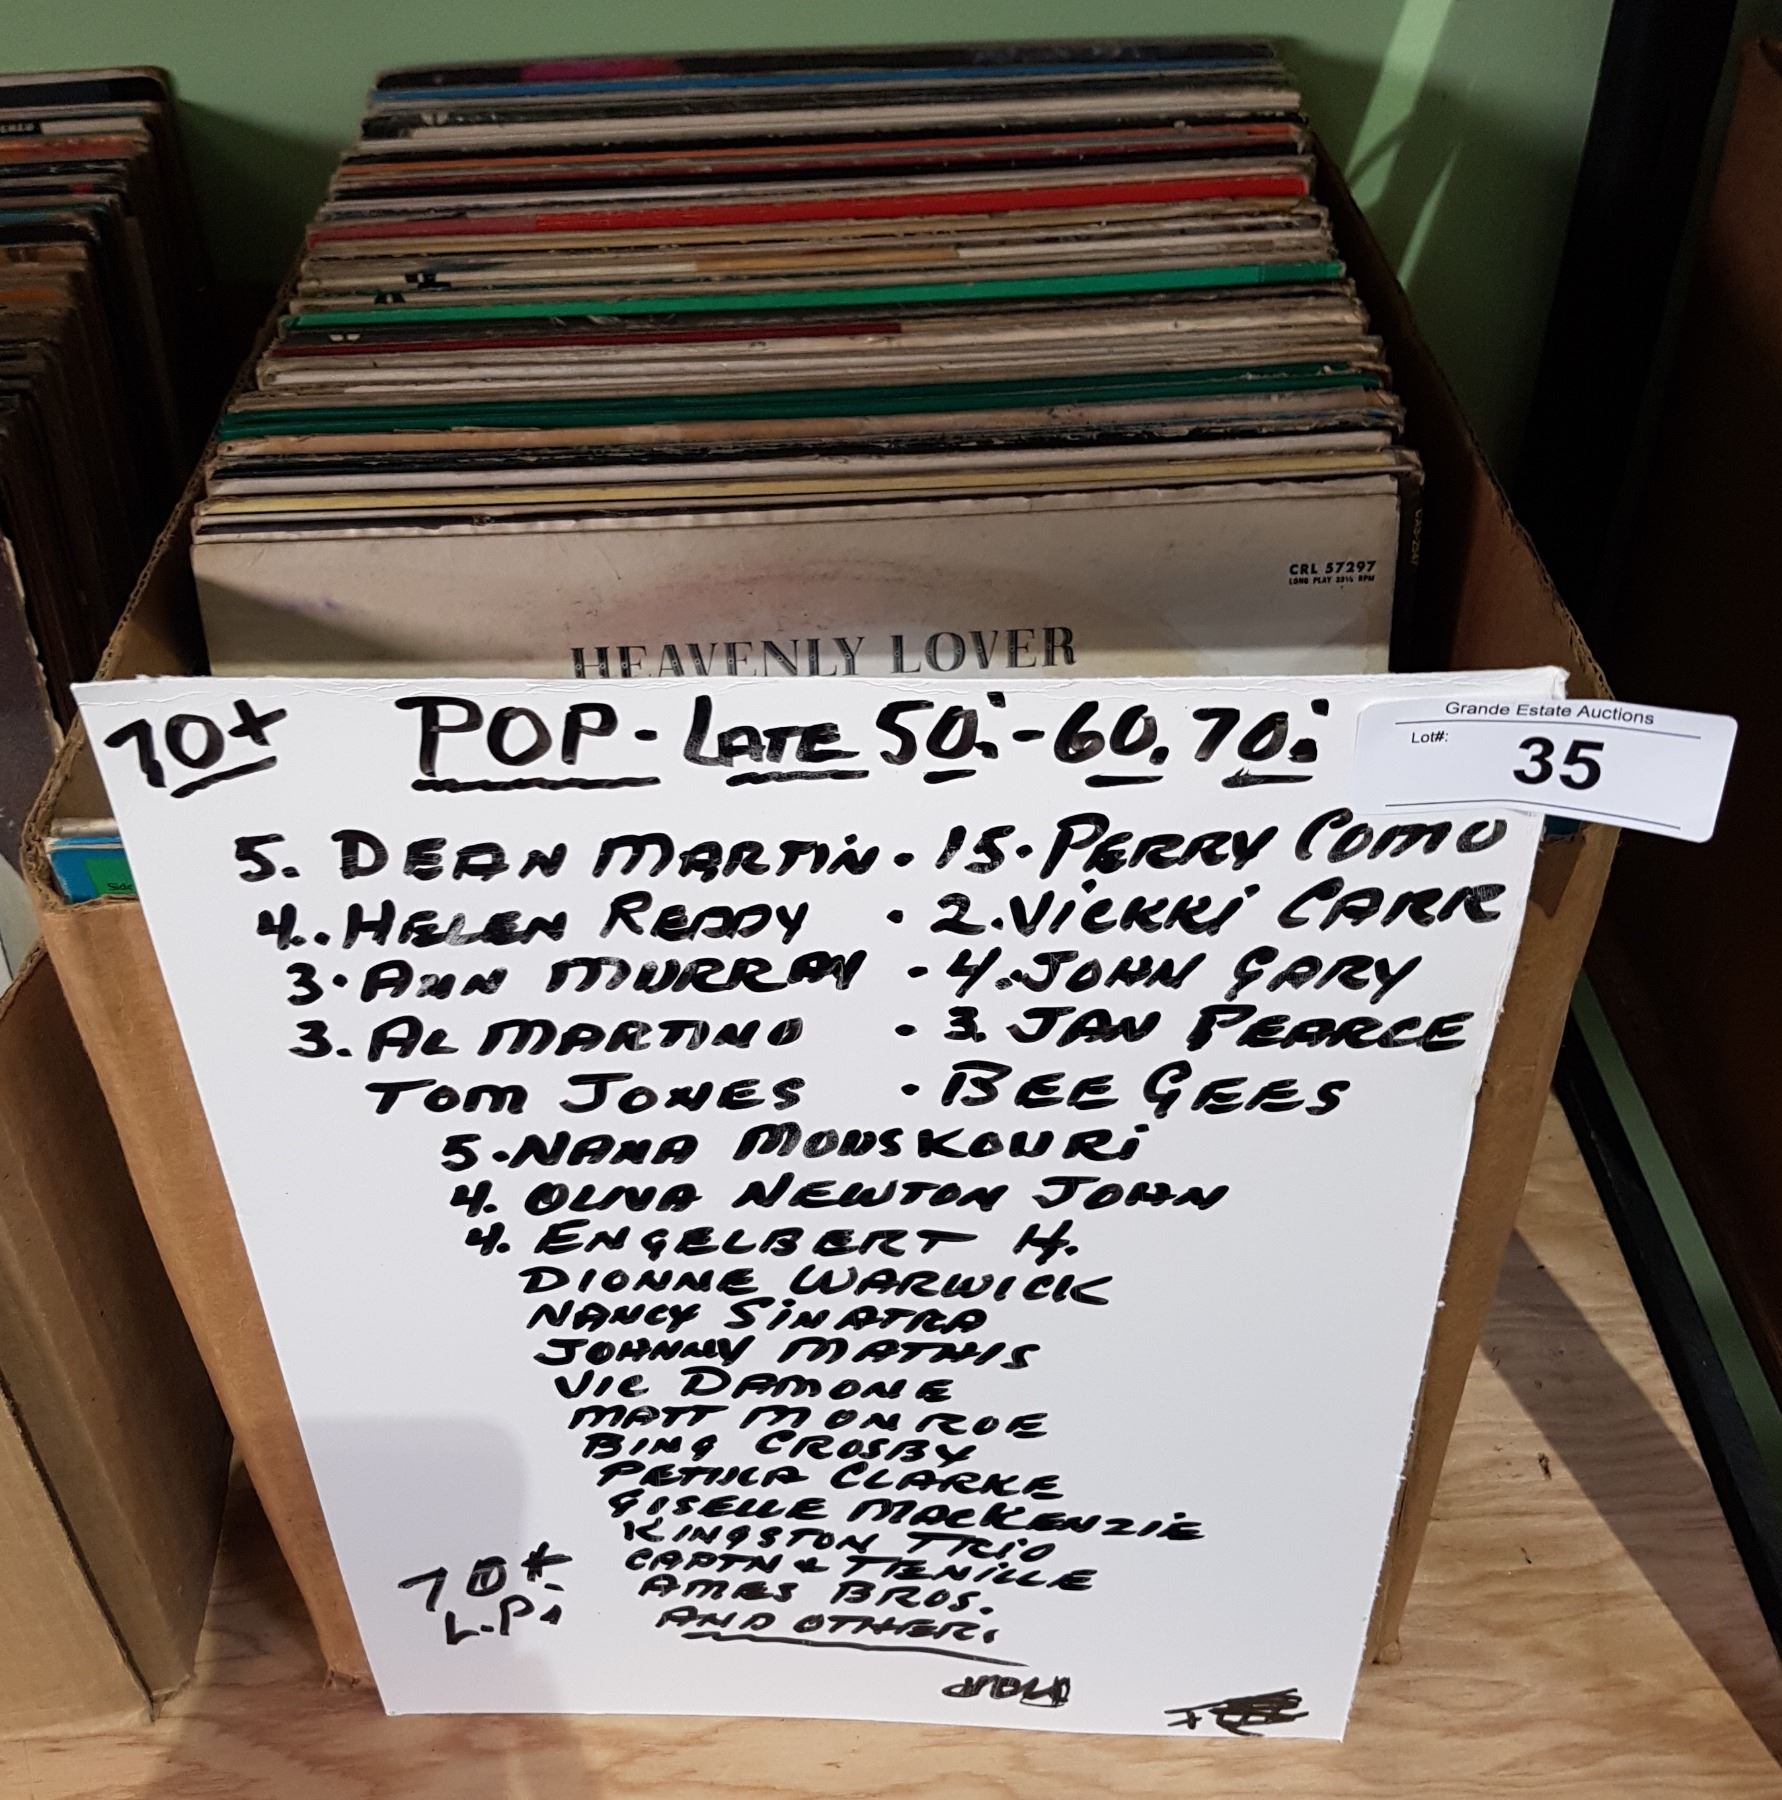 CRL 57297
LONG PLAY 33⅓ RPM
HEAVENLY LOVER
Grande Estate Auctions
Lot#: 35
70+ POP - LATE 50's - 60, 70's
5. DEAN MARTIN · 15 · PERRY COMO
4. HELEN REDDY · 2. VICKKI CARR
3 · ANN MURRAY · 4. JOHN GARY
3. AL MARTINO · 3. JAN PEARCE
TOM JONES · BEE GEES
5 · NANA MOUSKOURI
4. OLIVA NEWTON JOHN
4. ENGELBERT H.
DIONNE WARWICK
NANCY SINATRA
JOHNNY MATHIS
VIC DAMONE
MATT MONROE
BING CROSBY
PETULA CLARKE
GISELLE MACKENZIE
KINGSTON TRIO
CAPTN & TENILLE
AMES BROS.
AND OTHERS
70+
L.P's
Side